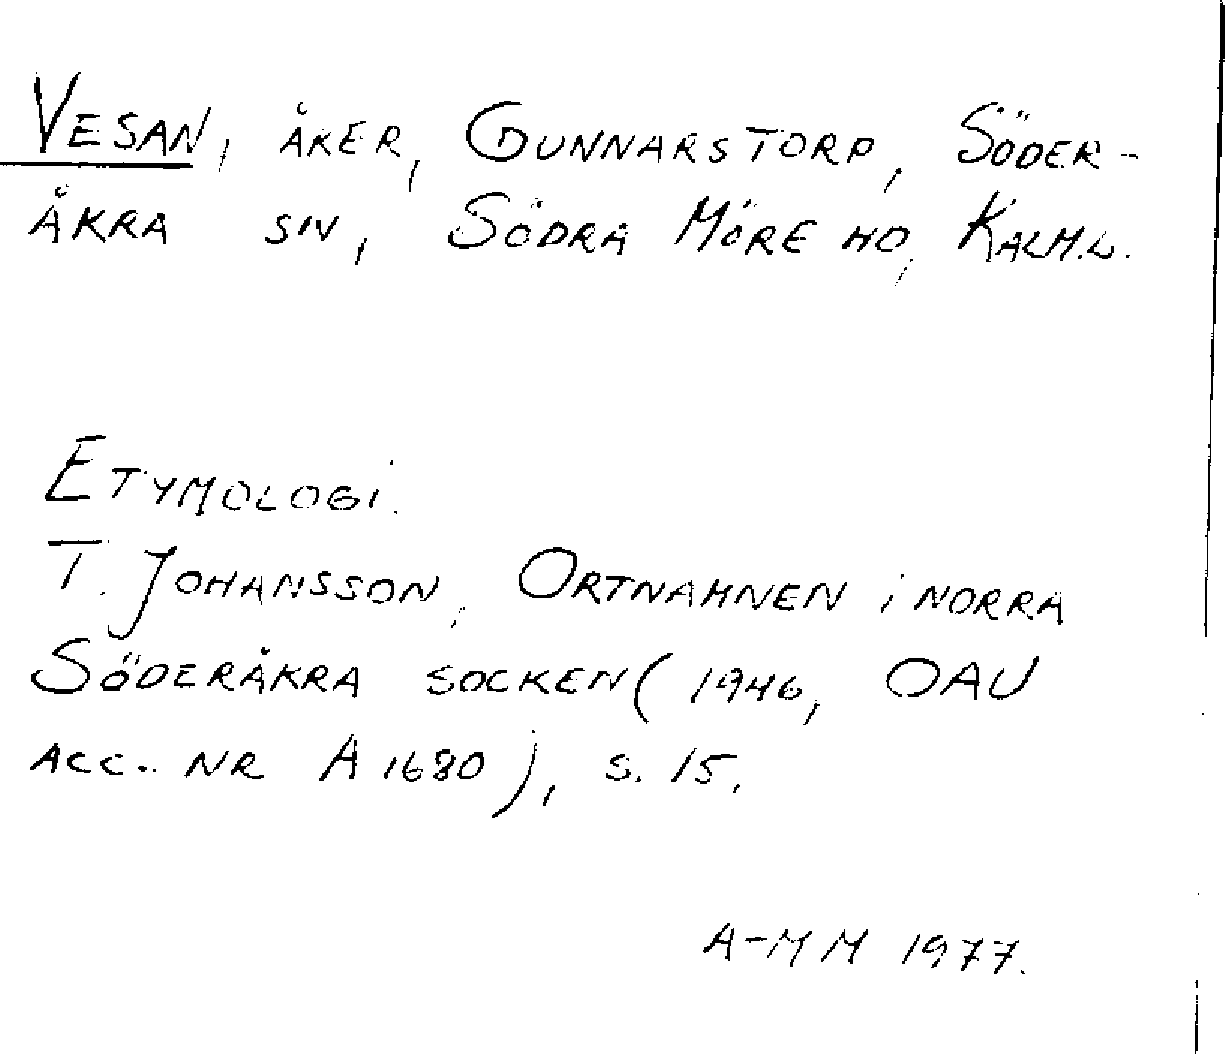 VESAN, ÅKER, GUNNARSTORP, SÖDER-
ÅKRA SN, SÖDRA MÖRE HD, KALM.L.
ETYMOLOGI.
T. JOHANSSON, ORTNAMNEN i NORRA
SÖDERÅKRA SOCKEN (1946, OAU
ACC. NR A 1680), s. 15.
A-MM 1977.